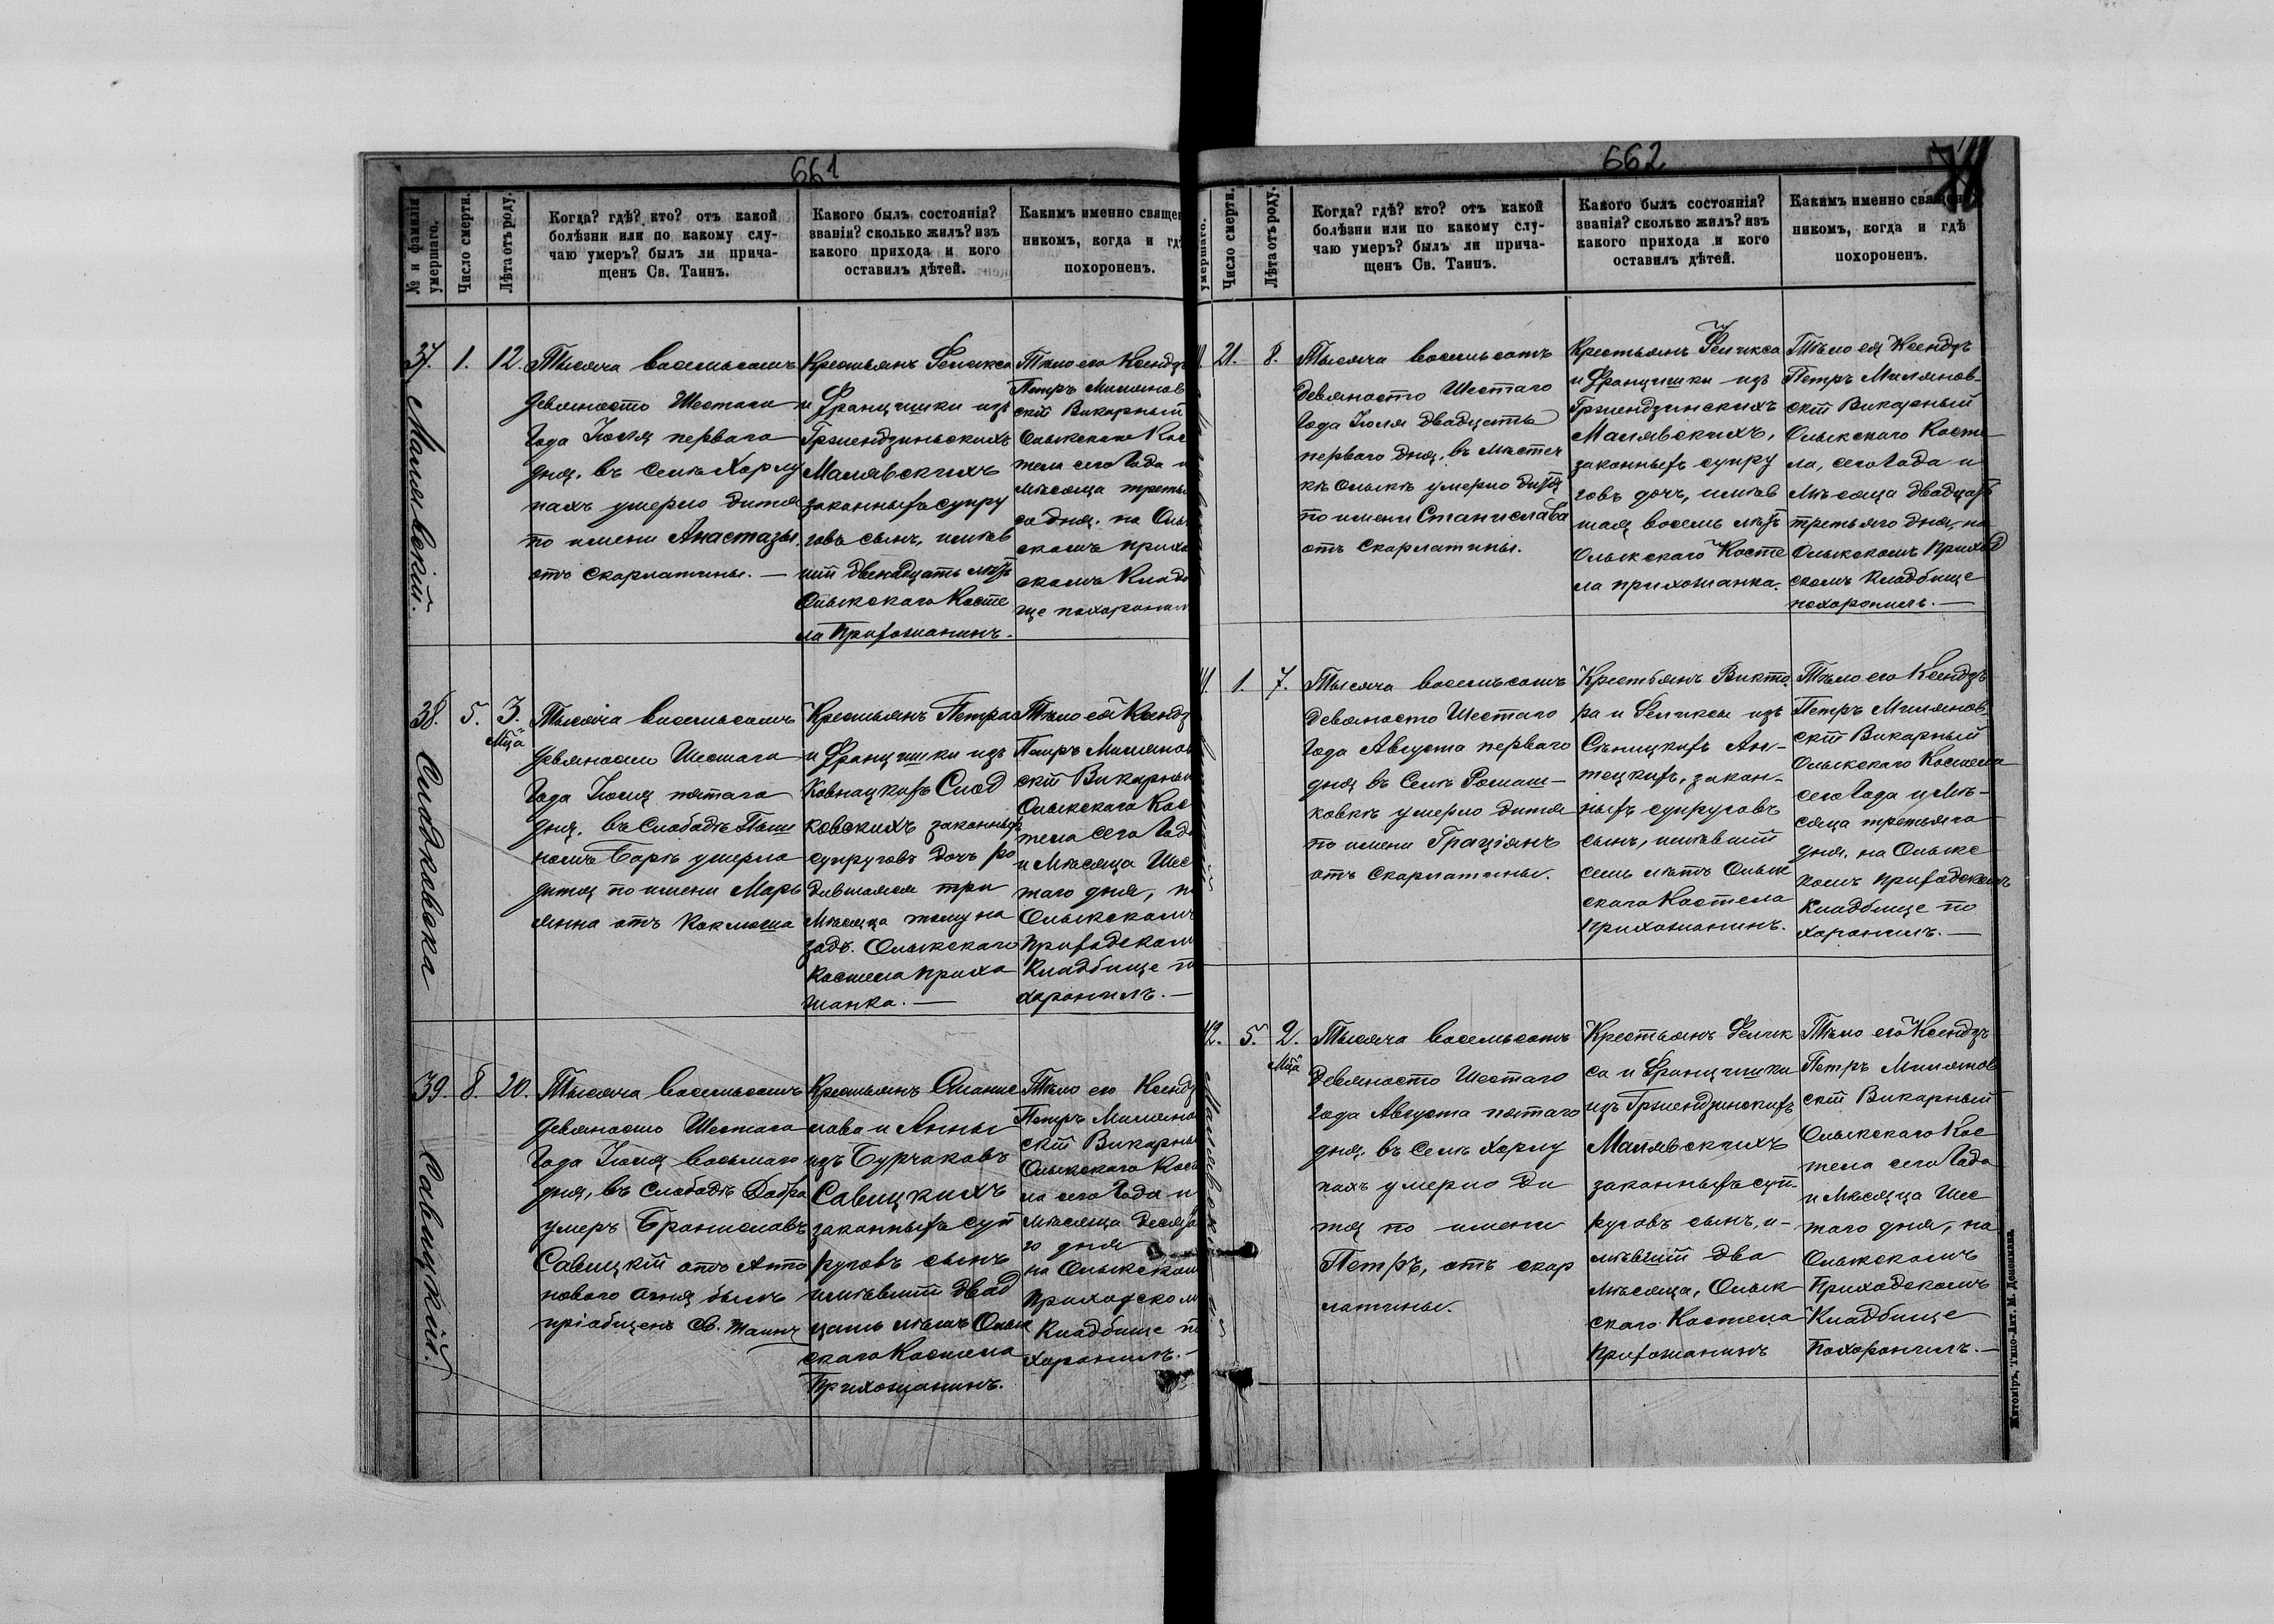 661
№ и фамилія умершаго.
Число смерти.
Лѣта отъ роду.
Когда? гдѣ? кто? отъ какой
болѣзни или по какому слу-
чаю умеръ? былъ ли прича-
щенъ Св. Таинъ.
Какого былъ состоянія?
званія? сколько жилъ? изъ
какого прихода и кого
оставилъ дѣтей.
Какимъ именно свяще
никомъ, когда и гд
похороненъ.
37.
Малявскій.
1.
12.
Тысяча восемьсотъ
девяносто Шестаго
Года Іюля перваго
дня. въ селѣ Хорлу
пахъ умерло дитя
по имени Анастазы,
отъ скарлатины. —
Крестьянъ Феликса
и Францишки изъ
Гржендзинскихъ
Малявскихъ
законныхъ супру
говъ сынъ, имѣв
шій двенадцать лѣтъ
Олыкскаго Косте
ла прихожанинъ.
Тѣло его Ксендзъ
Петръ Милянов
скій Викарный
Олыкскаго Кос
тела сего Года и
мѣсяца треть
го дня. на Олы
скомъ прихо
скомъ Кладб
ще похоронил
38.
Слодковска
5.
3.
Мца
Тысяча восемьсотъ
девяносто Шестаго
Года Іюля пятаго
дня. въ Слободѣ Пыш
номъ Борѣ умерло
дитя по имени Марь
янна отъ коклюша
Крестьянъ Петра
и Францишки изъ
Ковнацкихъ Слод
ковскихъ законныхъ
супруговъ дочь ро
дившаяся три
мѣсяца тому на
задъ. Олыкскаго
Костела прихо
жанка. —
Тѣло ея Ксендз
Петръ Милянов
скій Викарный
Олыкскаго Кос
тела сего Года
и Мѣсяца Шес
таго дня, н
Олыкскомъ
Приходском
Кладбище п
хоронилъ. —
39.
Савицкій.
8.
20.
Тысяча восемьсотъ
девяносто Шестаго
Года Іюля восьмаго
дня, въ Слободѣ Добра
умеръ Брониславъ
Савицкій отъ Анто
нового огня былъ
пріобщенъ Св. Таинъ
Крестьянъ Станис
лава и Анны
изъ Бурчаковъ
Савицкихъ
законныхъ суп
руговъ сынъ
имѣвшій двад
цать лѣтъ Олык
скаго Костела
Прихожанинъ.
Тѣло его Ксендз
Петръ Миляно
скій Викарны
Олыкскаго Кост
ла сего Года и
мѣсяца десята
го дня
на Олыкском
приходском
Кладбище п
хоронилъ. —
662
умершаго.
Число смерти.
Лѣта отъ роду.
Когда? гдѣ? кто? отъ какой
болѣзни или по какому слу-
чаю умеръ? былъ ли прича-
щенъ Св. Таинъ.
Какого былъ состоянія?
званія? сколько жилъ? изъ
какого прихода и кого
оставилъ дѣтей.
Какимъ именно священ
никомъ, когда и гдѣ
похороненъ.
21.
8.
Тысяча восемьсотъ
девяносто Шестаго
Года Іюля двадцать
перваго дня, въ Мѣстеч
кѣ Олыкѣ умерло дитя
по имени Станислава
отъ Скарлатины.
Крестьянъ Феликса
и Францишки изъ
Гржендзинскихъ
Малявскихъ,
законныхъ супру
говъ дочь, имѣв
шая восемь лѣтъ
Олыкскаго Косте
ла прихожанка.
Тѣло ея Ксендзъ
Петръ Милянов-
скій Викарный
Олыкскаго Косте
ла, сего Года и
мѣсяца двадцать
третьяго дня, на
Олыкскомъ Приход
скомъ Кладбище
похоронилъ. —
1.
7.
Тысяча восемьсотъ
девяносто Шестаго
Года Августа перваго
дня въ Селѣ Ромаш-
ковкѣ умерло дитя
по имени Граціянъ
отъ скарлатины.
Крестьянъ Викто
ра и Феликсы изъ
Сѣницкихъ Ан-
тецкихъ, закон-
ныхъ супруговъ
сынъ, имѣвшій
семь лѣтъ Олык
скаго Костела
прихожанинъ.
Тѣло его Ксендзъ
Петръ Милянов-
скій Викарный
Олыкскаго Костела
сего Года и Мѣ-
сяца третьяго
дня. на Олыкс
комъ приходскомъ
Кладбище по
хоронилъ. —
42.
5.
2.
Мца
Тысяча восемьсотъ
девяносто Шестаго
Года Августа пятаго
дня. въ Селѣ Хорлу
пахъ умерло Ди
тя по имени
Петръ, отъ скар
латины.
Крестьянъ Фелик
са и Францишки
изъ Гржендзинскихъ
Малявскихъ
законныхъ суп-
руговъ сынъ, и-
мѣвшій два
мѣсяца, Олык
скаго Костела
прихожанинъ
Тѣло его Ксендзъ
Петръ Милянов
скій Викарный
Олыкскаго Кос
тела сего Года
и Мѣсяца Шес
таго дня, на
Олыкскомъ
Приходскомъ
Кладбище
Похоронилъ. —
Житоміръ, Типо-Лит. М. Дененмана.